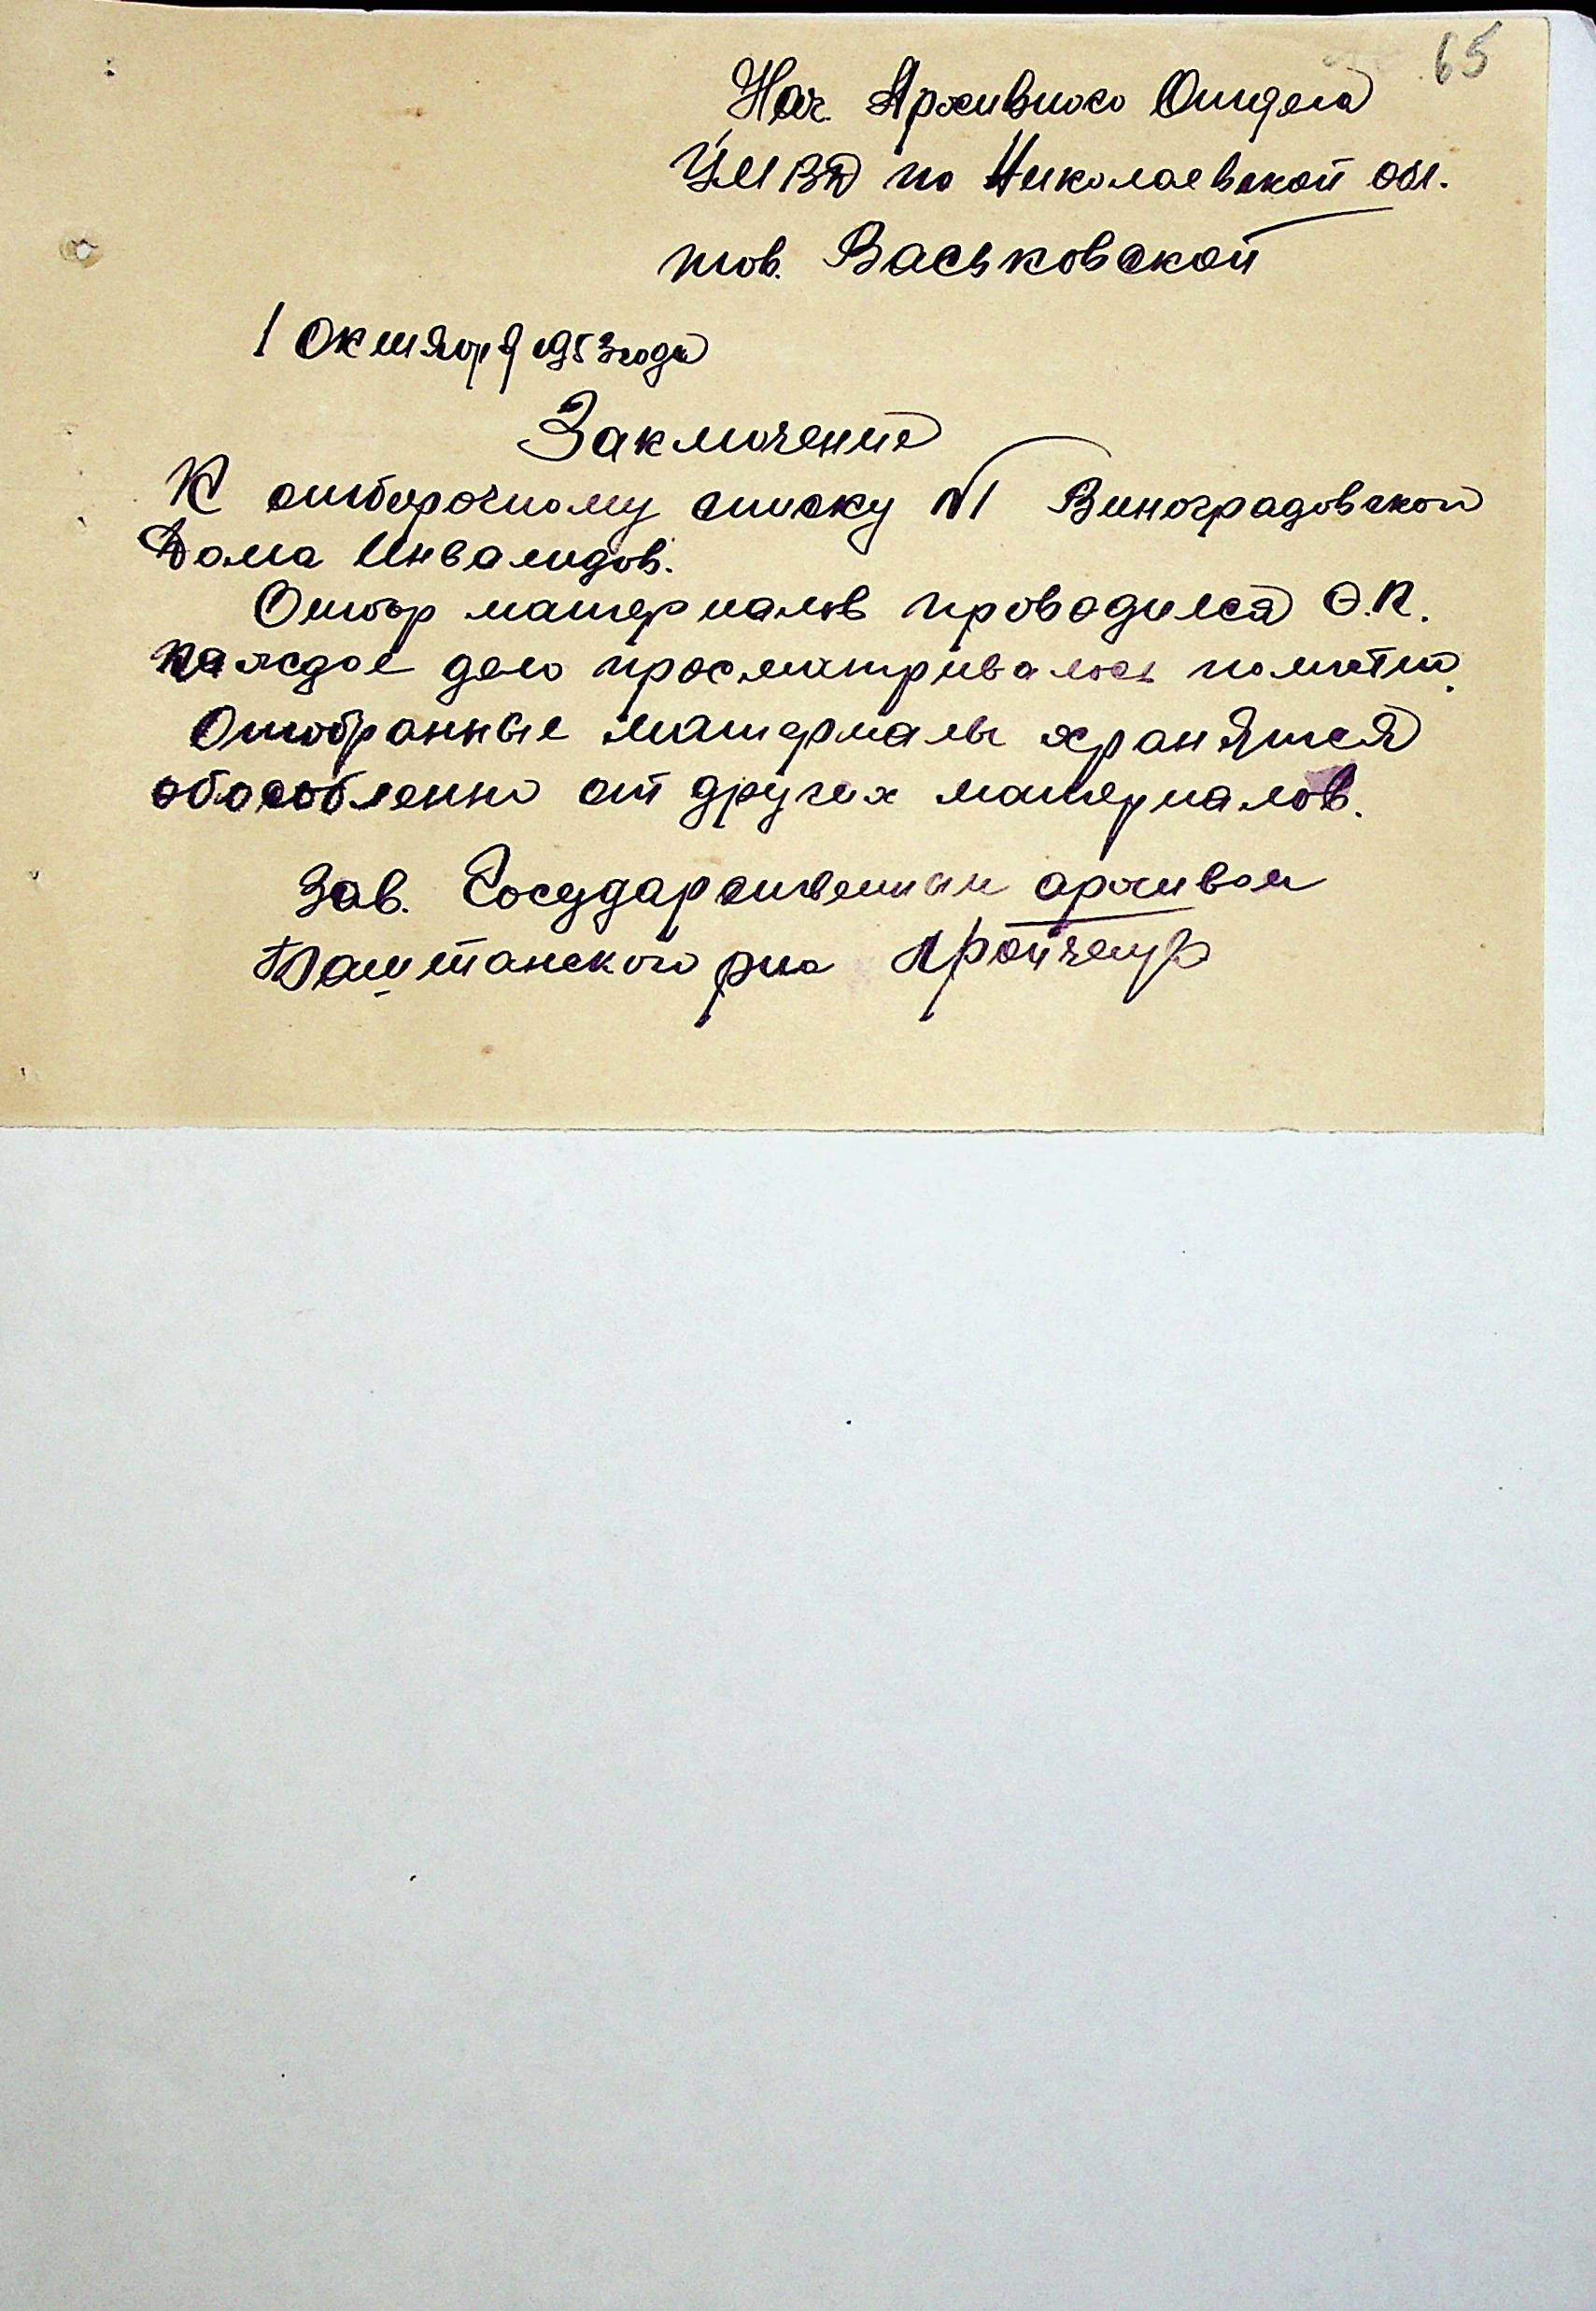 65
Нач. Архивного Отдела
УМВД по Николаевской обл.
тов. Васьковской
1 Октября 1953 года
Заключение
К отборочному списку №1 Виноградовской
Дома Инвалидов.
Отбор материалов проводился Э.К.
каждое дело просматривалось
Отобранные материалы хранятся
обособленно от других материалов.
Зав. Государственным архивом
Баштанского р-на